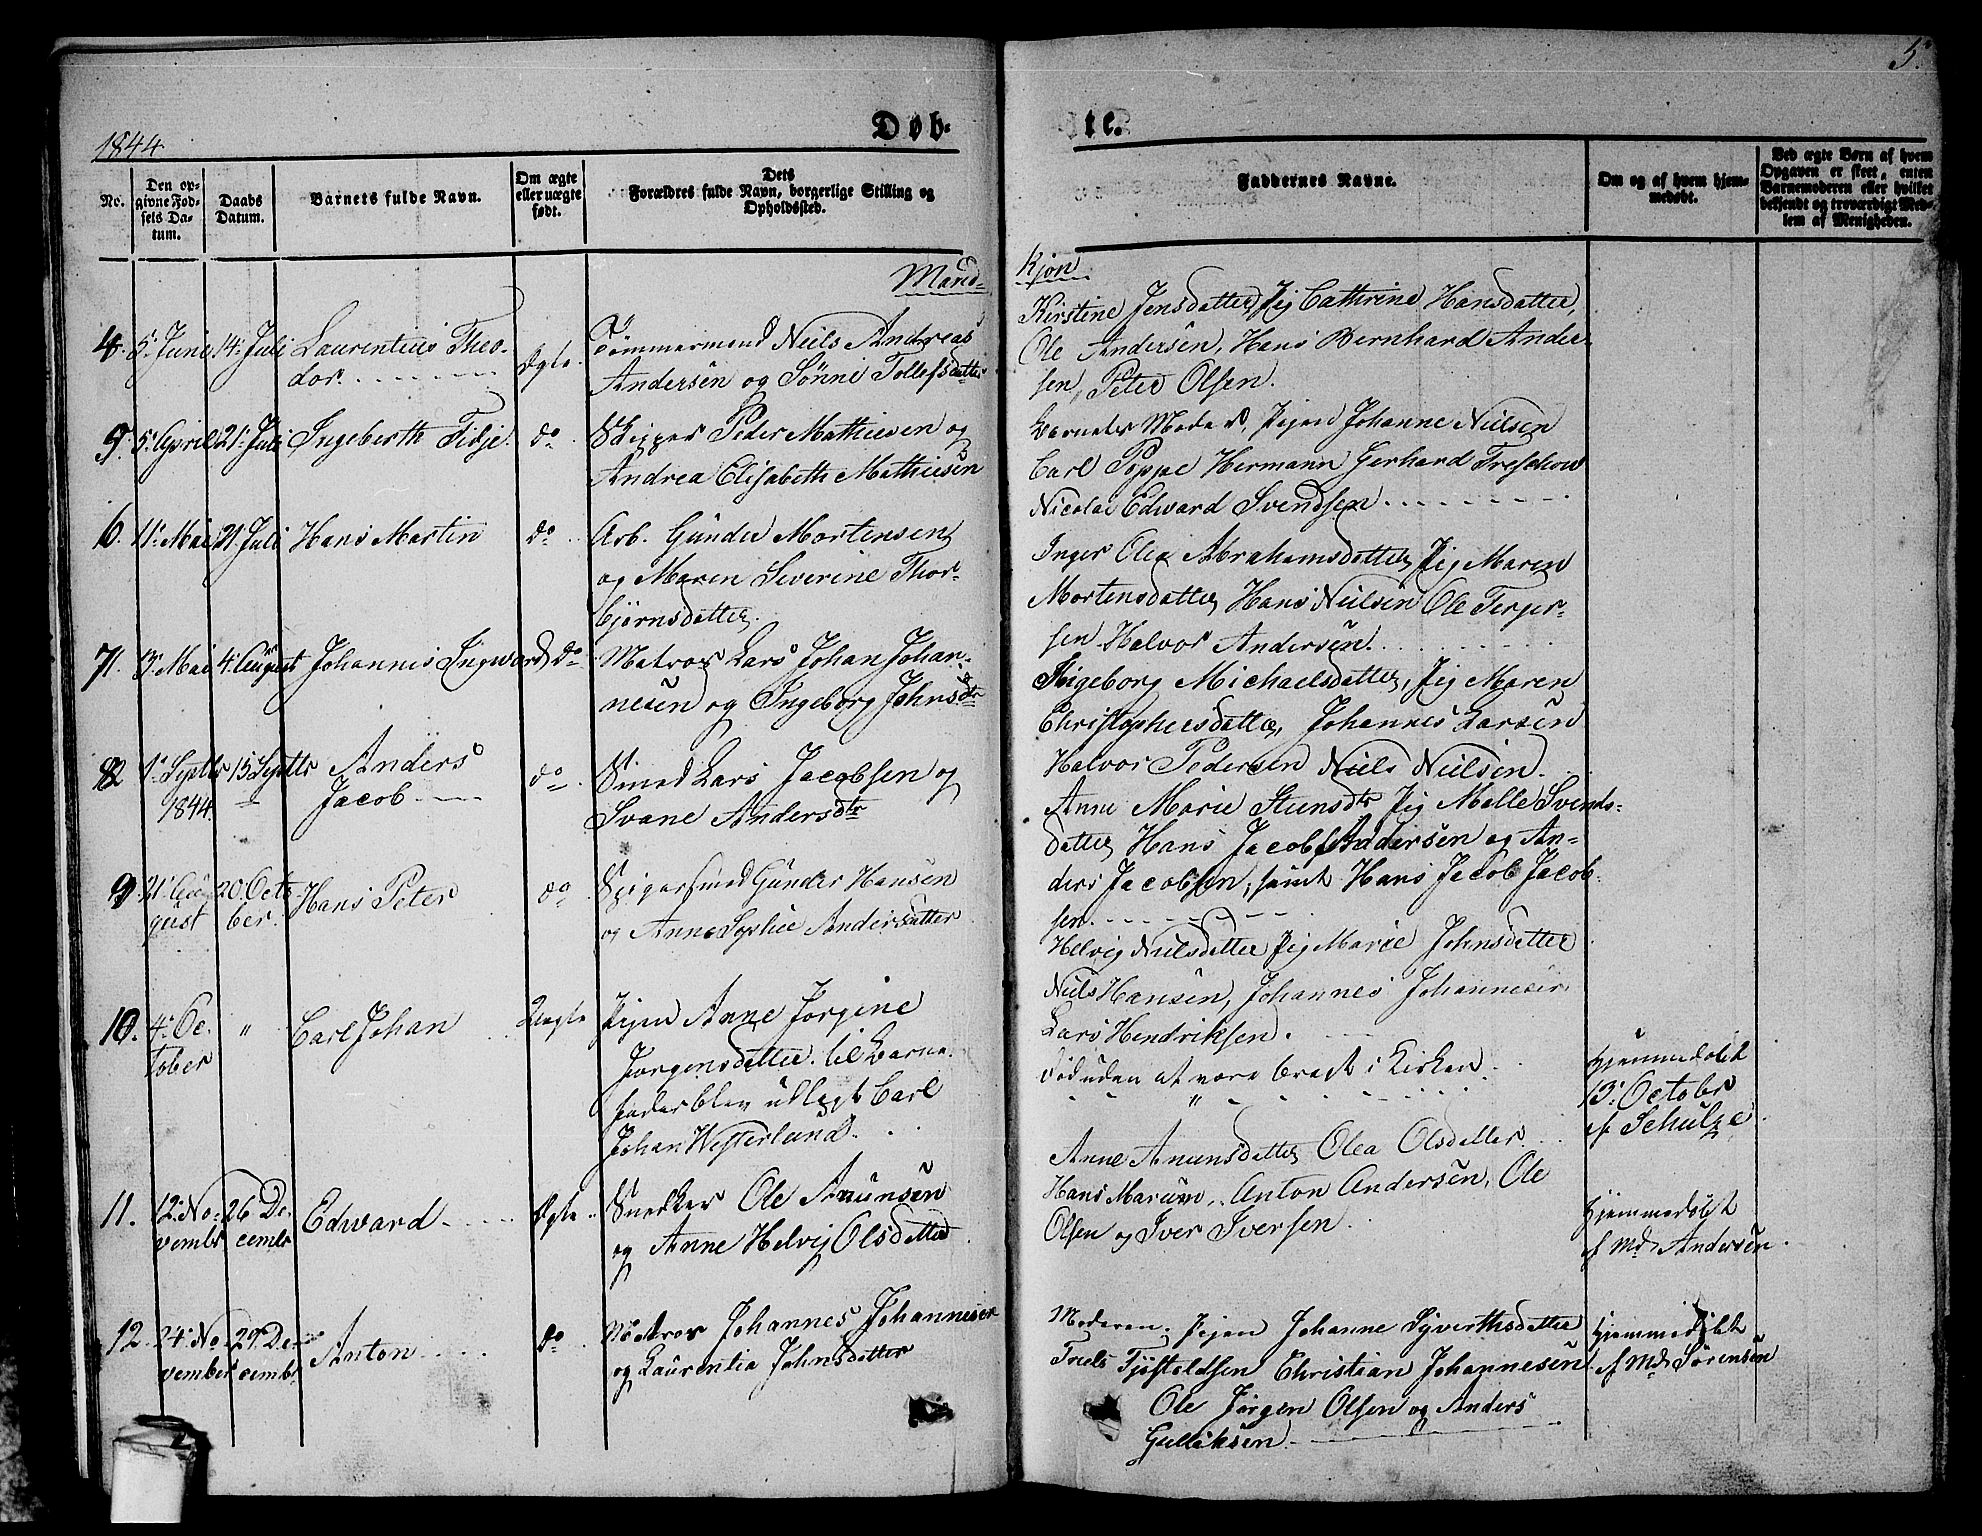 5.
1844
Døb-
te.
No.
Den op-
givne Fød-
sels Da-
tum.
Daabs
Datum.
Barnets fulde Navn.
Om ægte
eller uægte
født.
Dets
Forældres fulde Navn, borgerlige Stilling og
Opholdssted.
Faddernes Navne.
Om og af hvem hjem-
medøbt.
Ved ægte Børn af hvem
Opgaven er skeet, enten
Barnemoderen eller hvilket
bekjendt og troværdigt Med-
lem af Menigheden.
Mand-
Kjøn
4. 5. Juni 14. Juli Laurentius Theo-
dor.
Ægte
Tømmermand Niels Andreas
Andersen og Sønni Tollefsdatter
Kirstine Jensdatter, Pig Cathrine Hansdatter,
Ole Andersen, Hans Bernhard Ander-
sen, Peter Olsen.
5. 5. April 21. Juli Ingeberth Fidje. do
Skipper Peder Mathiesen og
Andrea Elisabeth Mathiesen
Barnets Moder, Pigen Johanne Nilsen
Carl Poppe Hermann Gerhard Treschow
Nicolai Edward Svendsen
6. 11. Mai 21. Juli Hans Martin do
Arb. Gunder Mortensen
og Maren Severine Thor-
bjørnsdatter.
Inger Olea Abrahamsdatter, Pig Maren
Mortensdatter Hans Nilsen Ole Terjer-
sen Halvor Andersen.
7. 13. Mai 4. August Johannes Ingward, do
Matros Lars Johan Johan-
nesen og Ingeborg Johnsdtr
Ingeborg Michaelsdatter, Pig Maren
Christophersdatter, Johannes Larsen
Halvor Pedersen Niels Nielsen.
8 1. Septbr 15 Septbr Anders
1844. Jacob
do
Smed Lars Jacobsen og
Svane Andersdtr
Anne Marie Steensdtr Pig Malle Svends-
datter Hans Jacob Andersen og An-
ders Jacobsen, samt Hans Jacob Jacob-
sen.
9 21. Au- 20. Octo Hans Peter do
gust ber.
Spigersmed Gunder Hansen
og Anne Sophie Andersdatter
Helvig Nielsdatter Pig Marie Johnsdatter
Niels Hansen, Johannes Johannesen
Lars Hendriksen.
10. 4. Oc- " Carl Johan Uægte
tober
Pigen Anne Jørgine
Jørgensdatter. til Barne-
fader blev udlagt Carl
Johan Westerlund.
Død uden at være bragt i Kirken
"
Hjemmedøbt
13. October
af Schulze
11. 12. No- 26. De- Edward Ægte
vembr cembr
Snedker Ole Anunsen
og Anne Helvig Olsdatter
Anne Anunsdatter Olea Olsdatter
Hans Anton Andersen, Ole
Olsen og Iver Iversen
Hjemmedøbt
af Md Andersen
12. 24. No- 29. De- Anton do
vember cembr
Matros Johannes Johannesen
og Laurentia Johnsdatter
Moderen. Pigen Johanne Syverthsdatter
Truls Tjøstoldsen Christian Johannesen
Ole Jørgen Olsen og Anders
Gulliksen
Hjemmedøbt
af Md Sørensen